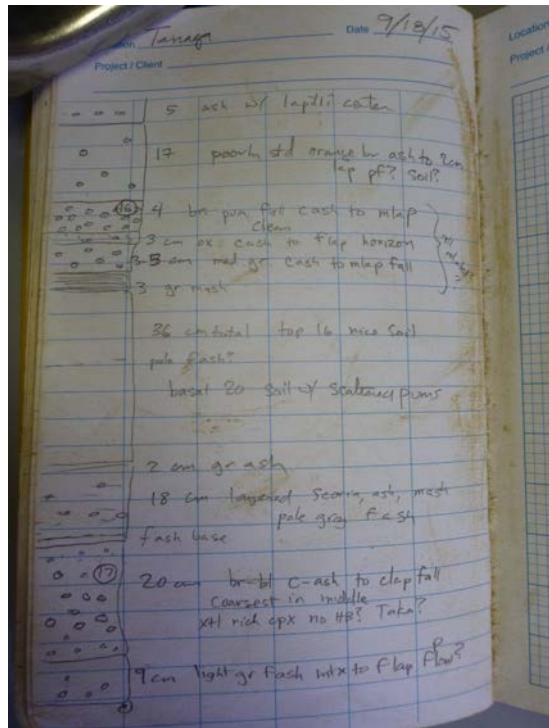 Location
Tanaga
Date 9/18/15
Location
Project / Client
Project /
5 ash w/ lapilli center
17 poorly std orange br ash to 2cm
lap pf? Soil?
(16) 4 br pum fall cash to mlap
clean
3 cm ox. cash to flap horizon
3-5 cm med gr. cash to mlap fall
3 gr mash
36 cm total top 16 nice soil
pale fash?
basal 20 soil w/ scattered pums
2 cm gr ash
18 cm layered scoria, ash, mash
pale gray fash
fash base
(17) 20 cm br-bl c-ash to clap fall
coarsest in middle
xtl rich cpx no HB? Taka?
9 cm light gr fash mtx to flap flow?
P